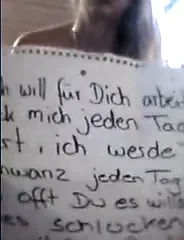 h will für Dich arbeit
k mich jeden Tag
rt, ich werde
hwanz jeden Tag
offt Du es wills
es schlucken